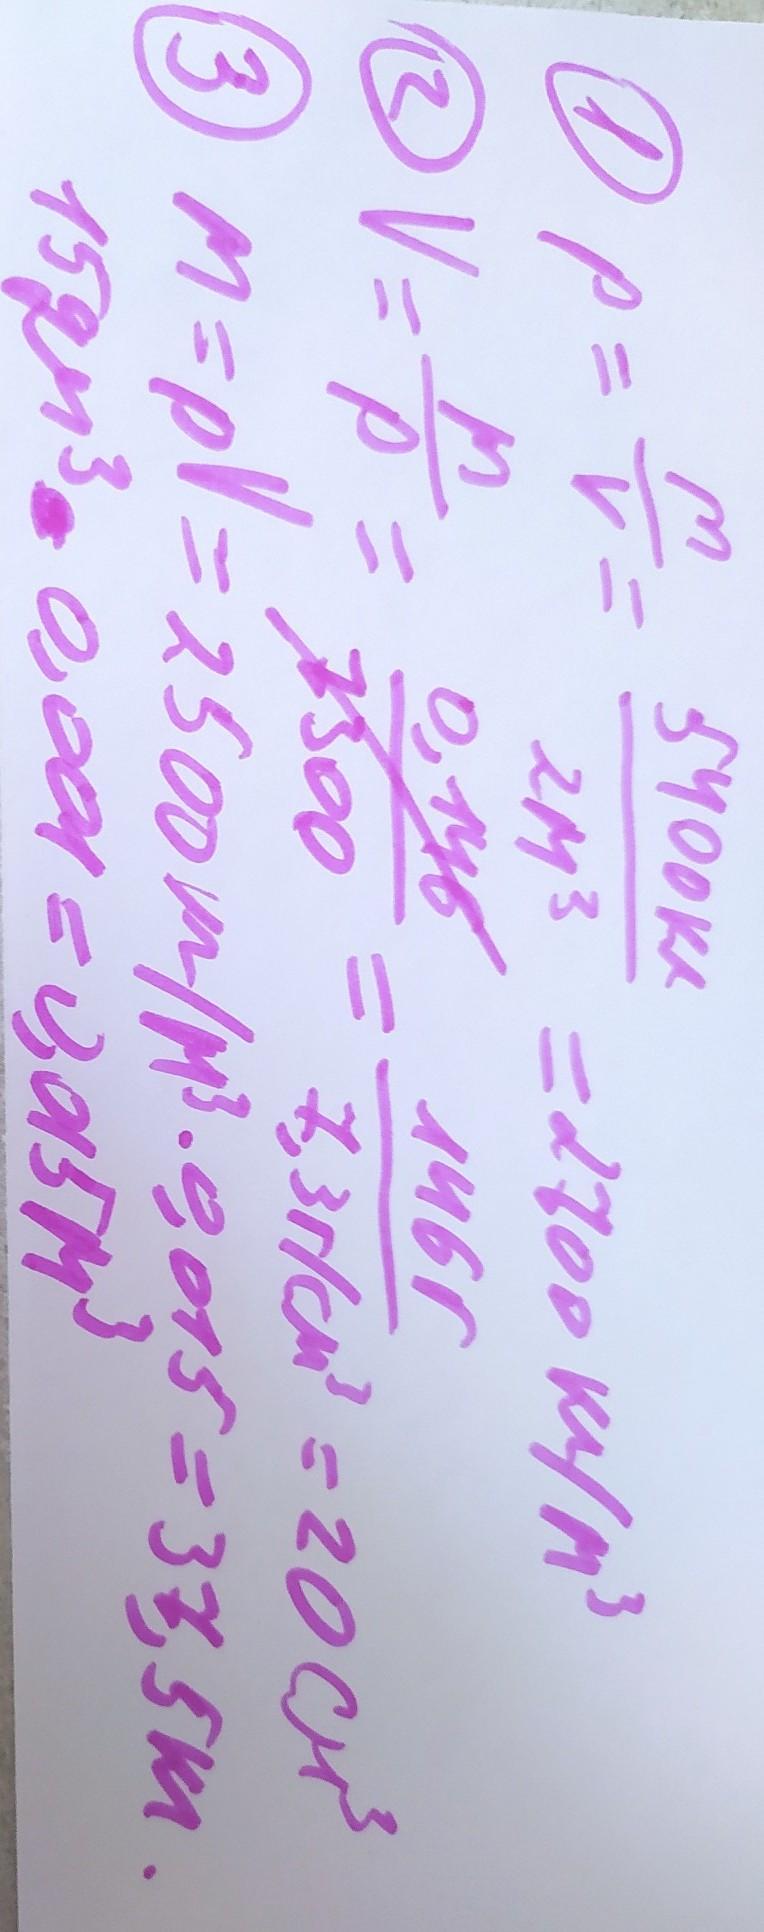 ① ρ = m/V = 5400кг/2м³ = 2700 кг/м³
② V = m/ρ = 0,146/7300 = 146г/7,3г/см³ = 20 см³
③ m = ρV = 2500 кг/м³ · 0,015 = 37,5кг.
15дм³ · 0,001 = 0,015м³